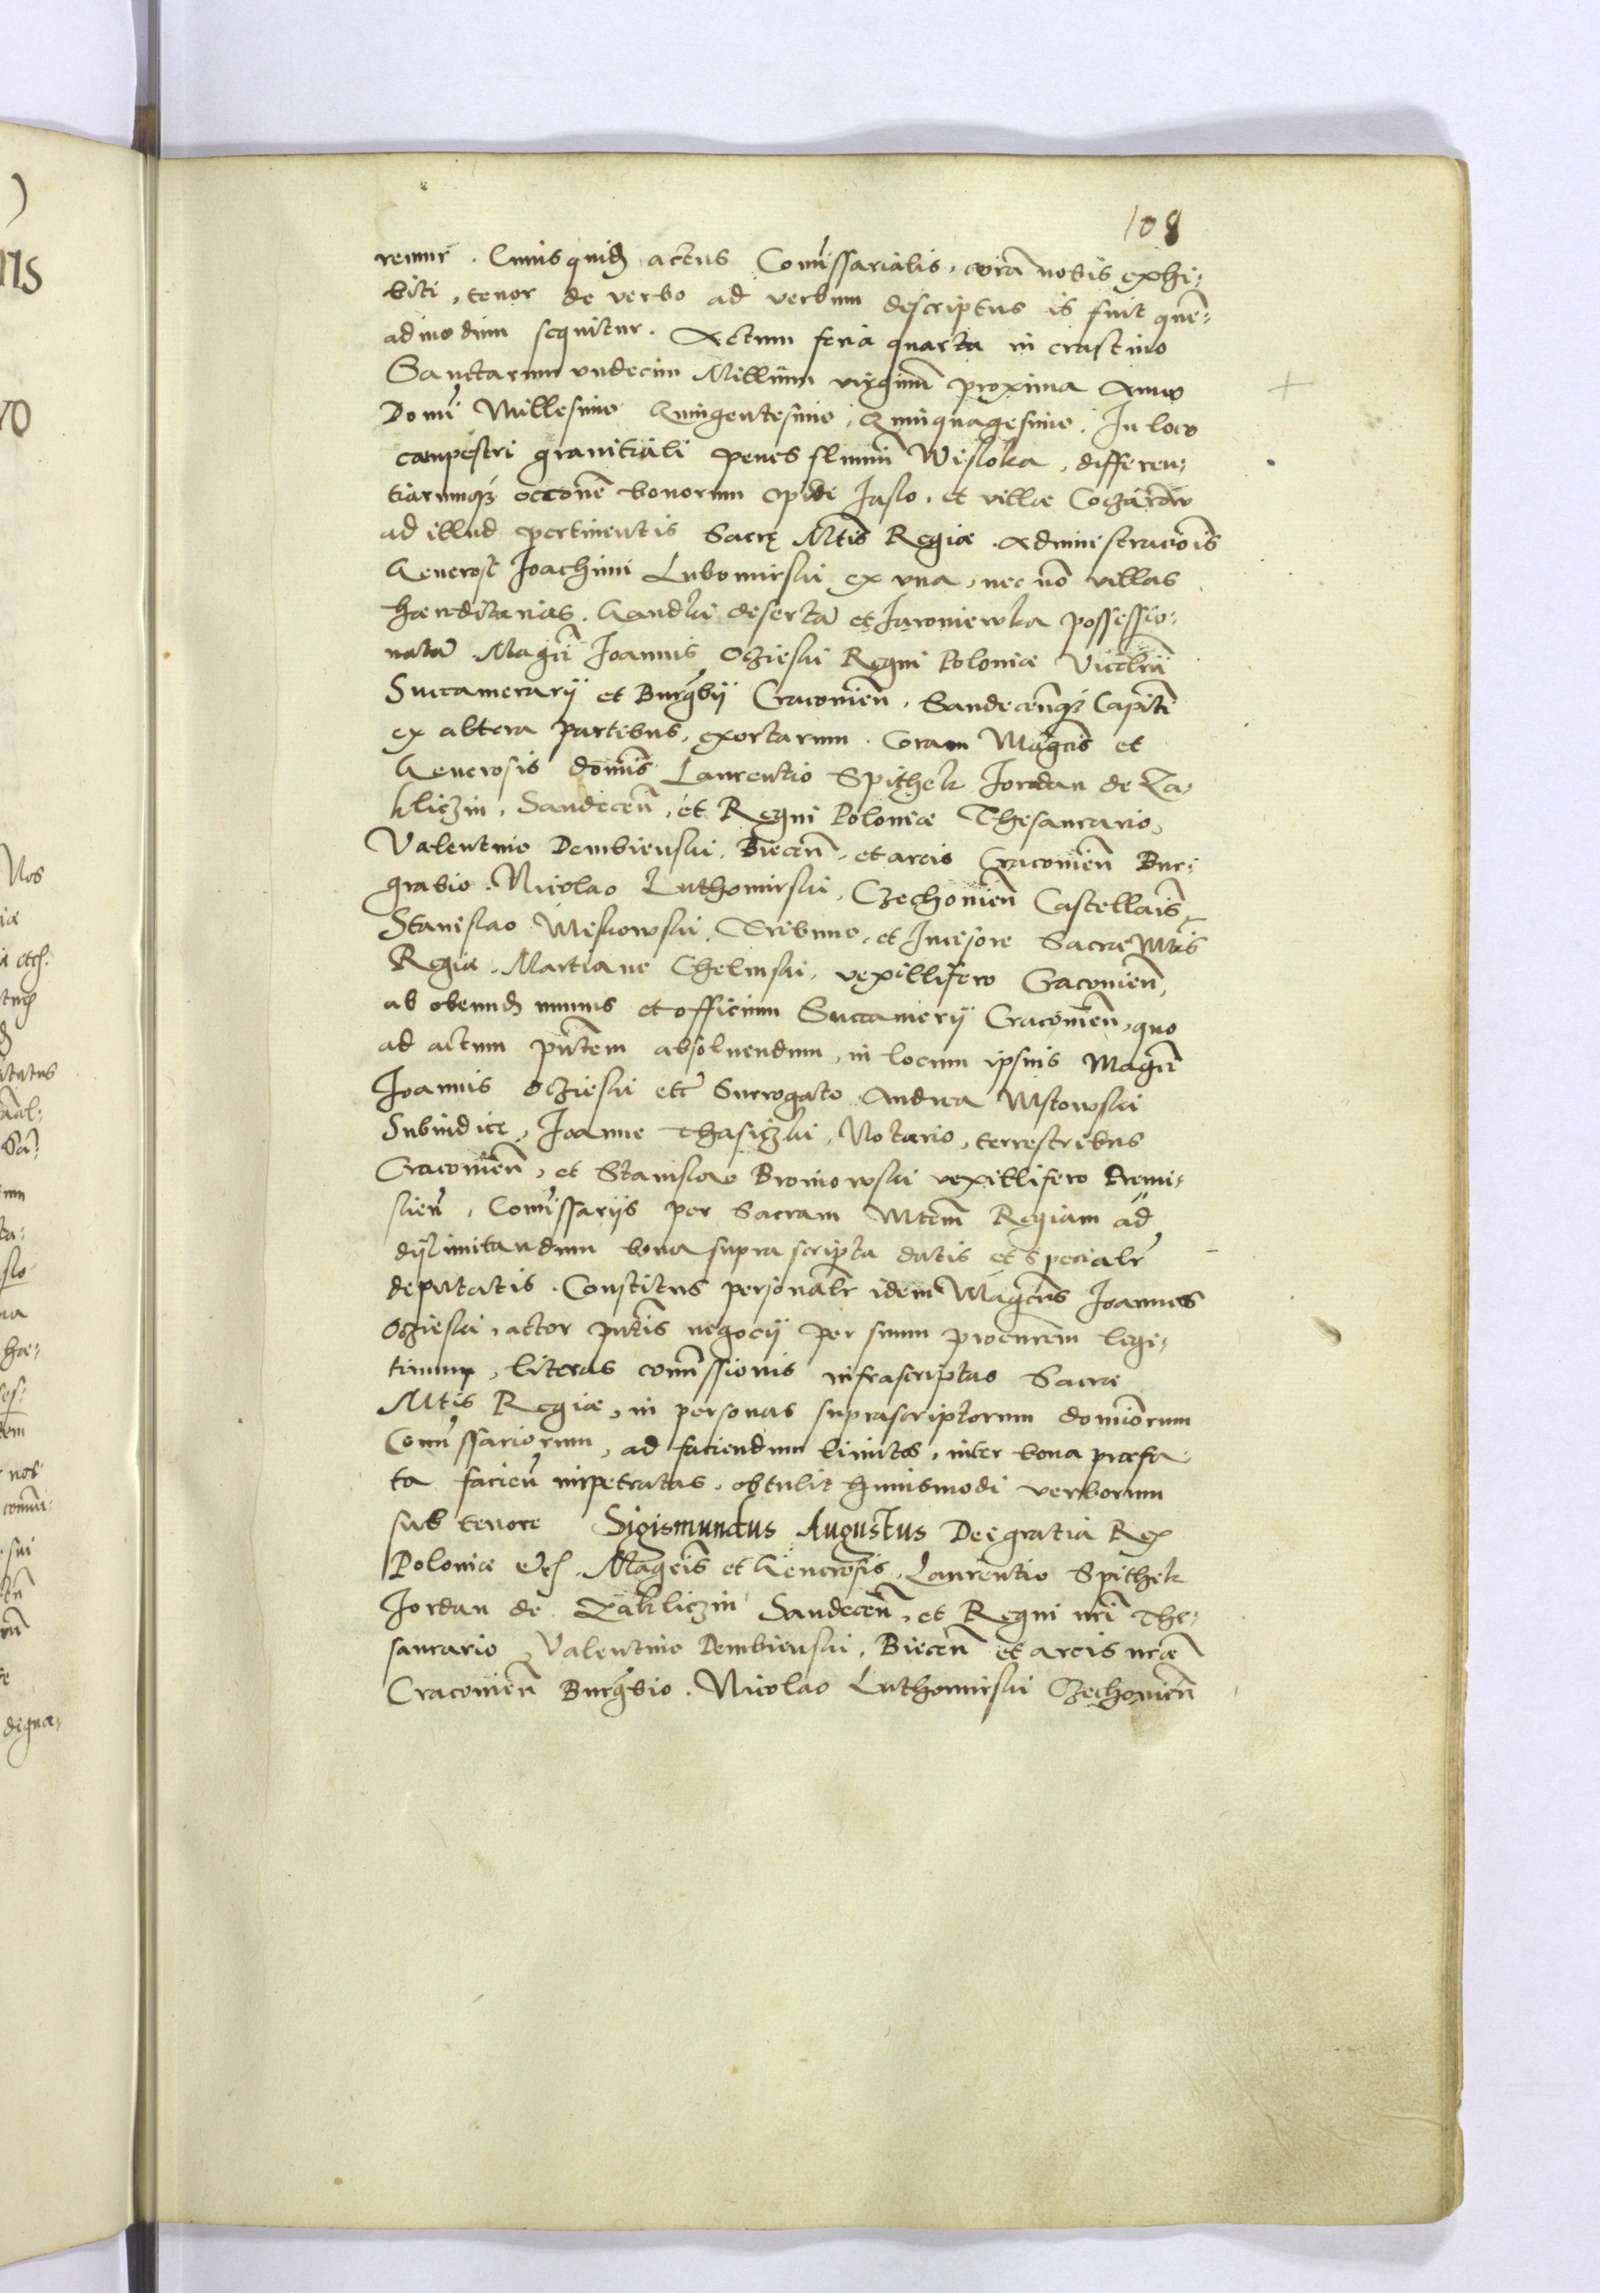 108
remur. Cuius quid actus Comissarialis, corā nobis exhi:
biti, tenor de verbo ad verbum descriptus is fuit quē:
admodum sequitur. Actum feria quarta in crastino
Sanctarum undecim Millium virginū proxima Anno
Domī Millesimo Quingentesimo, Quinquagesimo. In loco
campestri granitiali penes flumē Wisloka, differen:
tiarumq; occonē bonorum opidi Jaslo, et villae
ad illud pertinentis Sacrę Mtis Regiae Administracōis
Generosi Joachimi Lubomirski ex una, nec nō villas
haereditarias. desertā et possessio:
natā Magci Joannis Oczieski Regni Poloniae Vicecrii
Succamerarij et Burgbij Cracovien̄, Sandecen̄q; Capitē
ex altera partibus, exortarum. Coram Magcis et
Generosis domīs Laurentio Spithek Jordan de Za:
kliczin, Sandecen̄, et Regni Poloniae Thesaurario,
Valentino Dembienski, Biecen̄, et arcis Cracovien̄ Bur:
grabio. Nicolao Luthomirski, Czechovien̄ Castellaīs,
Stanislao Miskowski, Tribuno, et Incisore Sacrae Mtis
Regiae. Martiano Chelmski, vexillifero Cracovien̄,
ab obeund munus et officium Succamerij Cracovien̄, quo
ad actum pn̄tem absolvendum, in locum ipsius Magci
Joannis Oczieski etc Surrogato Andrea Mstowski
Subiudice, Joanne Thasiczki, Notario, terrestribus
Cracovien̄, et Stanislao Broniowski vexillifero Premi:
slien̄, Comissarijs per Sacram Mtem Regiam ad
dislimitandum bona suprascripta datis et specialr
deputatis. Constitus personalr idem Magcus Joannes
Oczieski, actor pn̄tis negocij per suum procurem legi:
timum, literas comissionis infrascriptas Sacrae
Mtis Regiae, in personas suprascriptorum dominorum
Comissariorum, ad faciendum limites, inter bona praefa:
ta facien̄ impetratas, obtulit huiusmodi verborum
sub tenore Sigismundus Augustus Dei gratia Rex
Poloniae etc. Magcis et Generosis, Laurentio Spithek
Jordan de Zakliczin Sandecen̄, et Regni nri The:
saurario, Valentino Dembienski, Biecen̄ et arcis nrae
Cracovien̄ Burgbio. Nicolao Luthomirski Czechovien̄